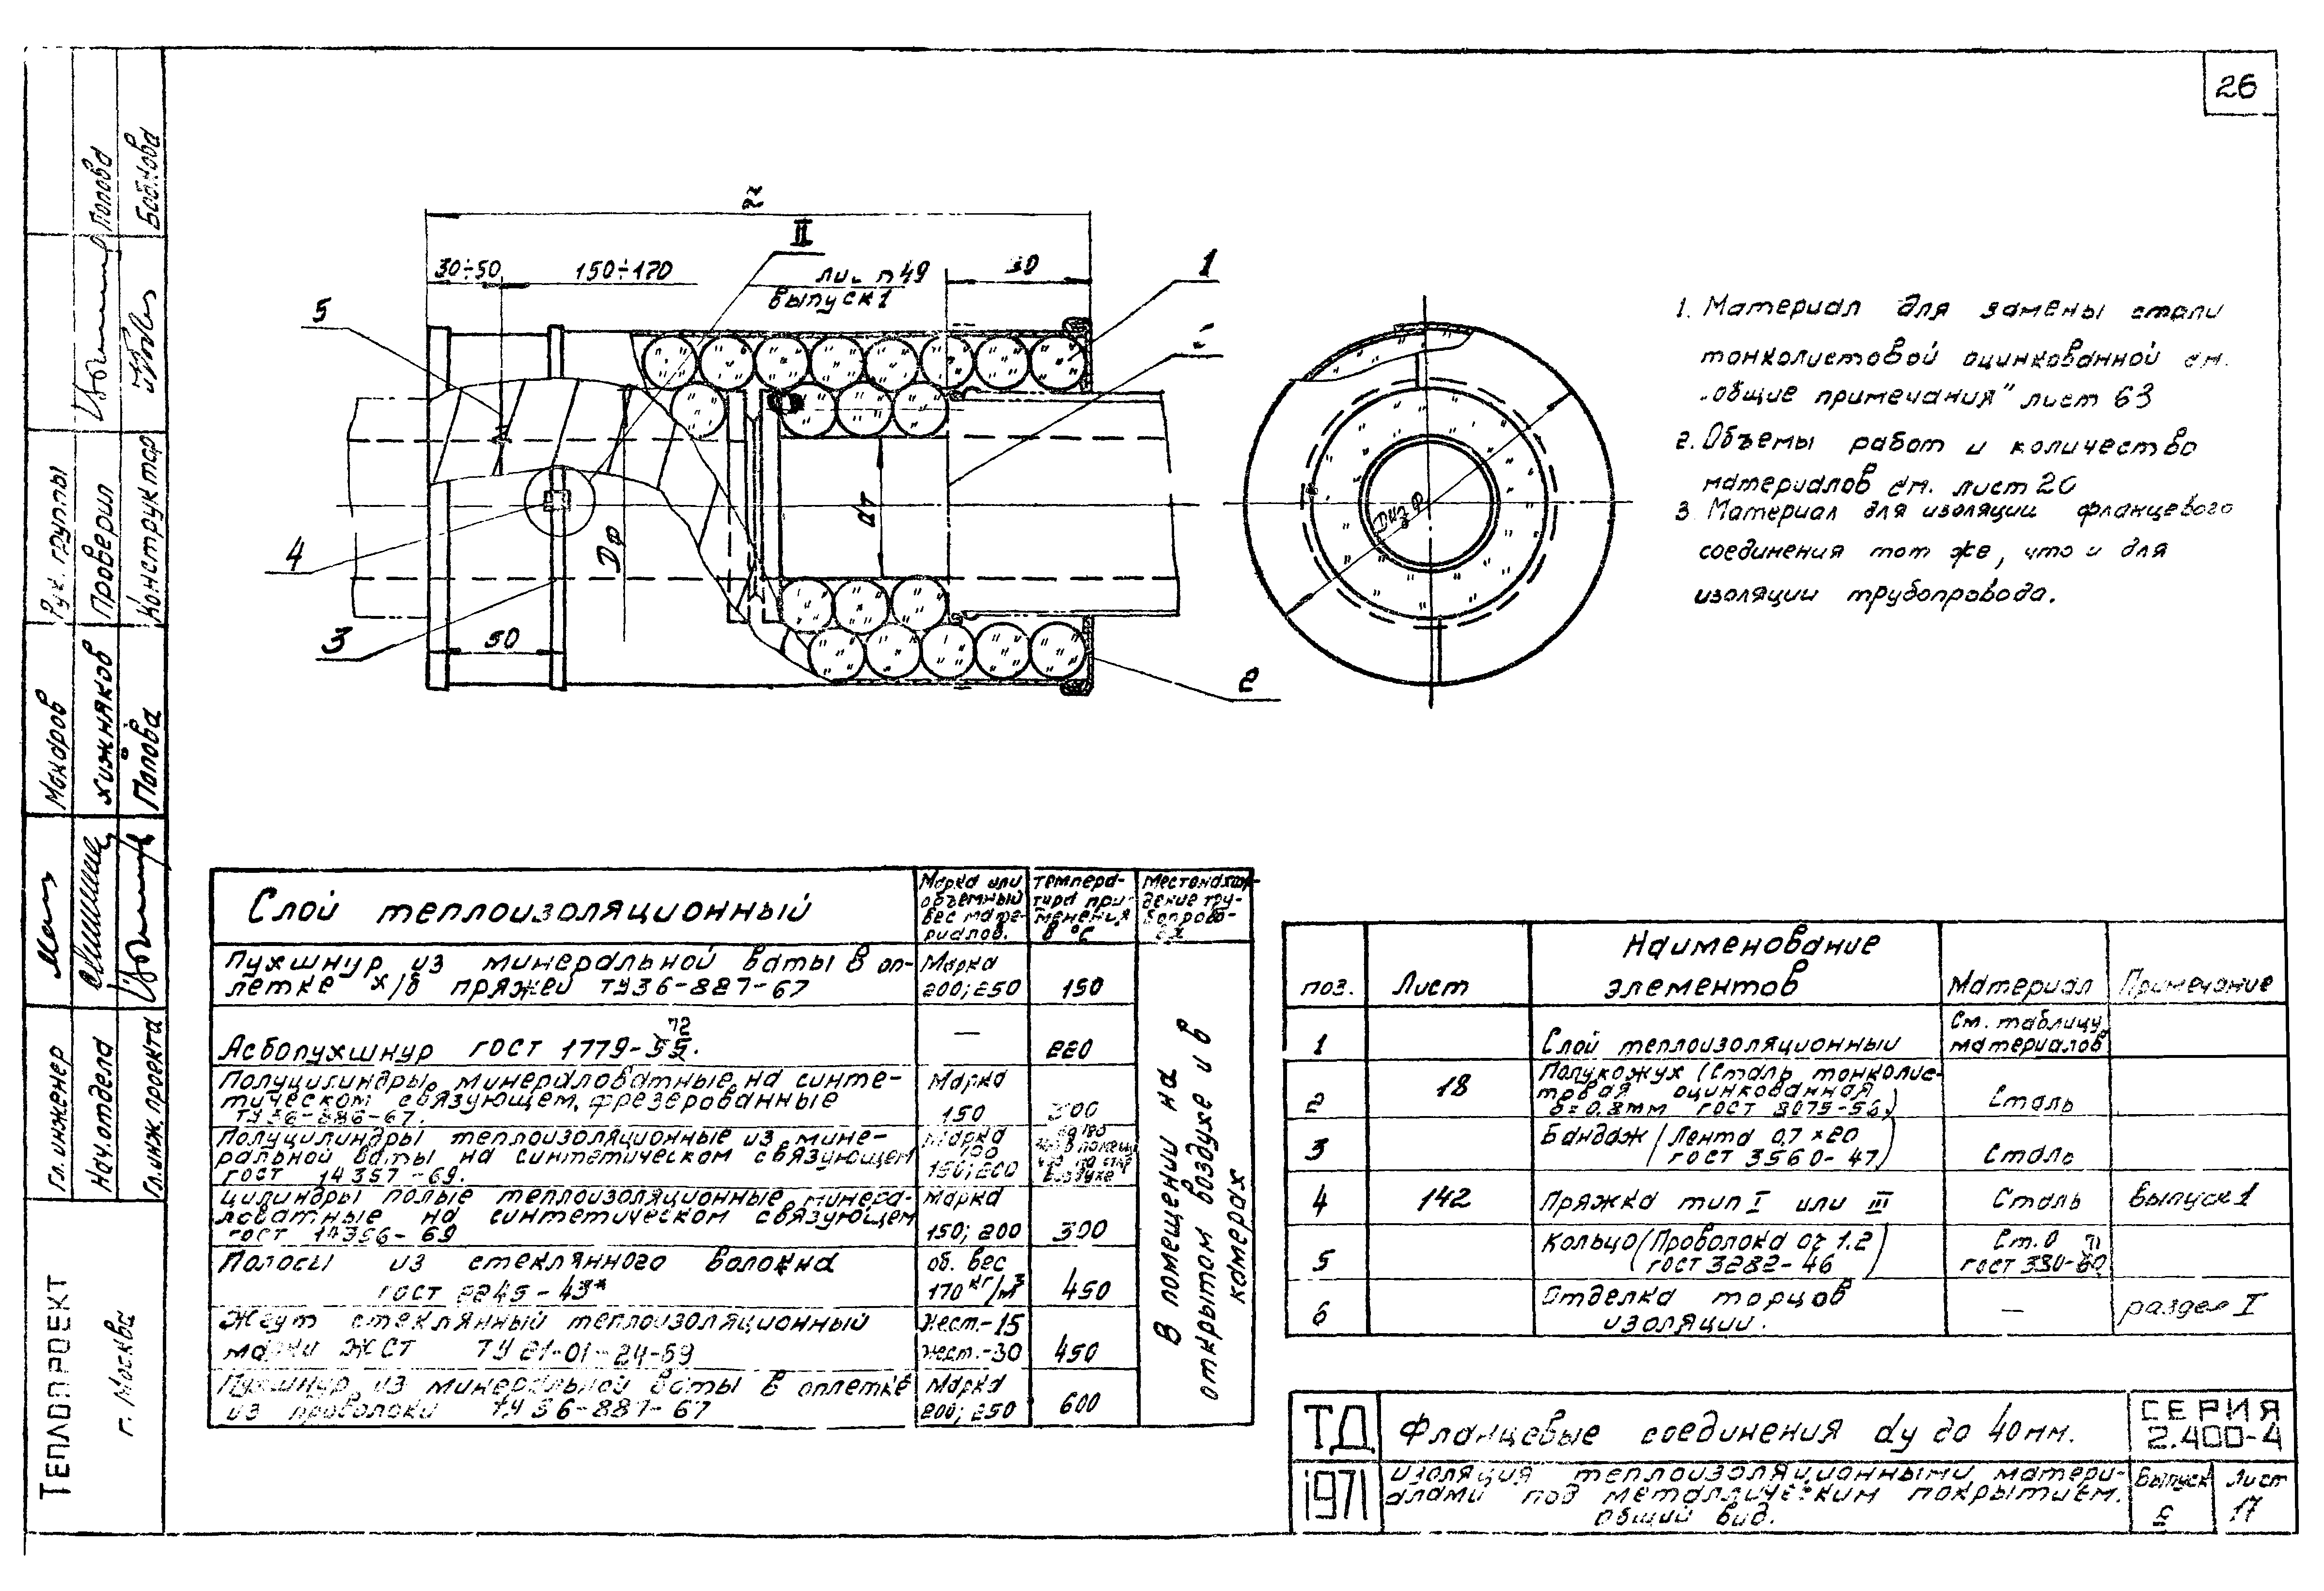 26
30÷50
150÷170
II
лист 49
выпуск 1
30
1
5
4
3
50
Dф
dт
2
Dиз ф
1. Материал для замены стали
тонколистовой оцинкованной см.
„общие примечания" лист 63
2. Объемы работ и количество
материалов см. лист 20
3. Материал для изоляции фланцевого
соединения тот же, что и для
изоляции трубопровода.
Слой теплоизоляционный
Марка или
объемный
вес мате-
риалов.
Темпера-
тура при-
менения
в °С
Местонахож-
дение тру-
бопрово-
да
Пухшнур из минеральной ваты в оп-
летке х/б пряжей ТУ36-887-67
Марка
200; 250
150
Асбопухшнур ГОСТ 1779-55.
72
—
220
Полуцилиндры минераловатные на синте-
тическом связующем, фрезерованные
ТУ36-886-67.
Марка
150
300
Полуцилиндры теплоизоляционные из мине-
ральной ваты на синтетическом связующем
ГОСТ 14357-69.
Марка
100
150; 200
Цилиндры полые теплоизоляционные минера-
ловатные на синтетическом связующем
ГОСТ 14356-69
Марка
150; 200
300
Полосы из стеклянного волокна
ГОСТ 2245-43*
об. вес
170 кг/м³
450
Жгут стеклянный теплоизоляционный
марки ЖСТ ТУ 21-01-24-69
Жест.-15
жест.-30
450
Пухшнур из минеральной ваты в оплетке
из проволоки ТУ 36-887-67
Марка
200; 250
600
В помещении на
открытом воздухе и в
камерах
поз.
Лист
Наименование
элементов
Материал
Примечание
1
Слой теплоизоляционный
См. таблицу
материалов
2
18
Полукожух (Сталь тонколис-
товая оцинкованная
δ=0,8мм ГОСТ 8075-56)
Сталь
3
Бандаж (Лента 0,7×20
ГОСТ 3560-47)
Сталь
4
142
Пряжка тип I или III
Сталь
Выпуск 1
5
Кольцо (Проволока оч 1.2
ГОСТ 3282-46)
Ст. 0
ГОСТ 380-60
71
6
Отделка торцов
изоляции.
—
раздел I
ТД
1971
Фланцевые соединения dу до 40мм.
Изоляция теплоизоляционными матери-
алами под металлическим покрытием.
Общий вид.
СЕРИЯ
2.400-4
Выпуск
2
Лист
17
ТЕПЛОПРОЕКТ
г. Москва
Гл. инженер
Нач. отдела
Гл. инж. проекта
Макаров
Хижняков
Попова
Рук. группы
Проверил
Конструктор
Попова
Бобкова